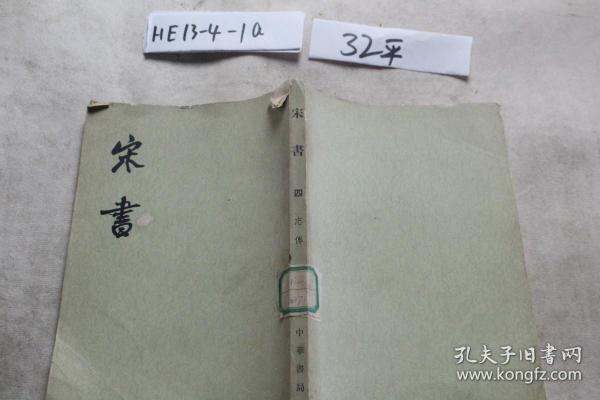 HE13-4-1a
32平
宋書
宋書 四 志傳
中華書局
孔夫子旧書网
www.kongfz.com